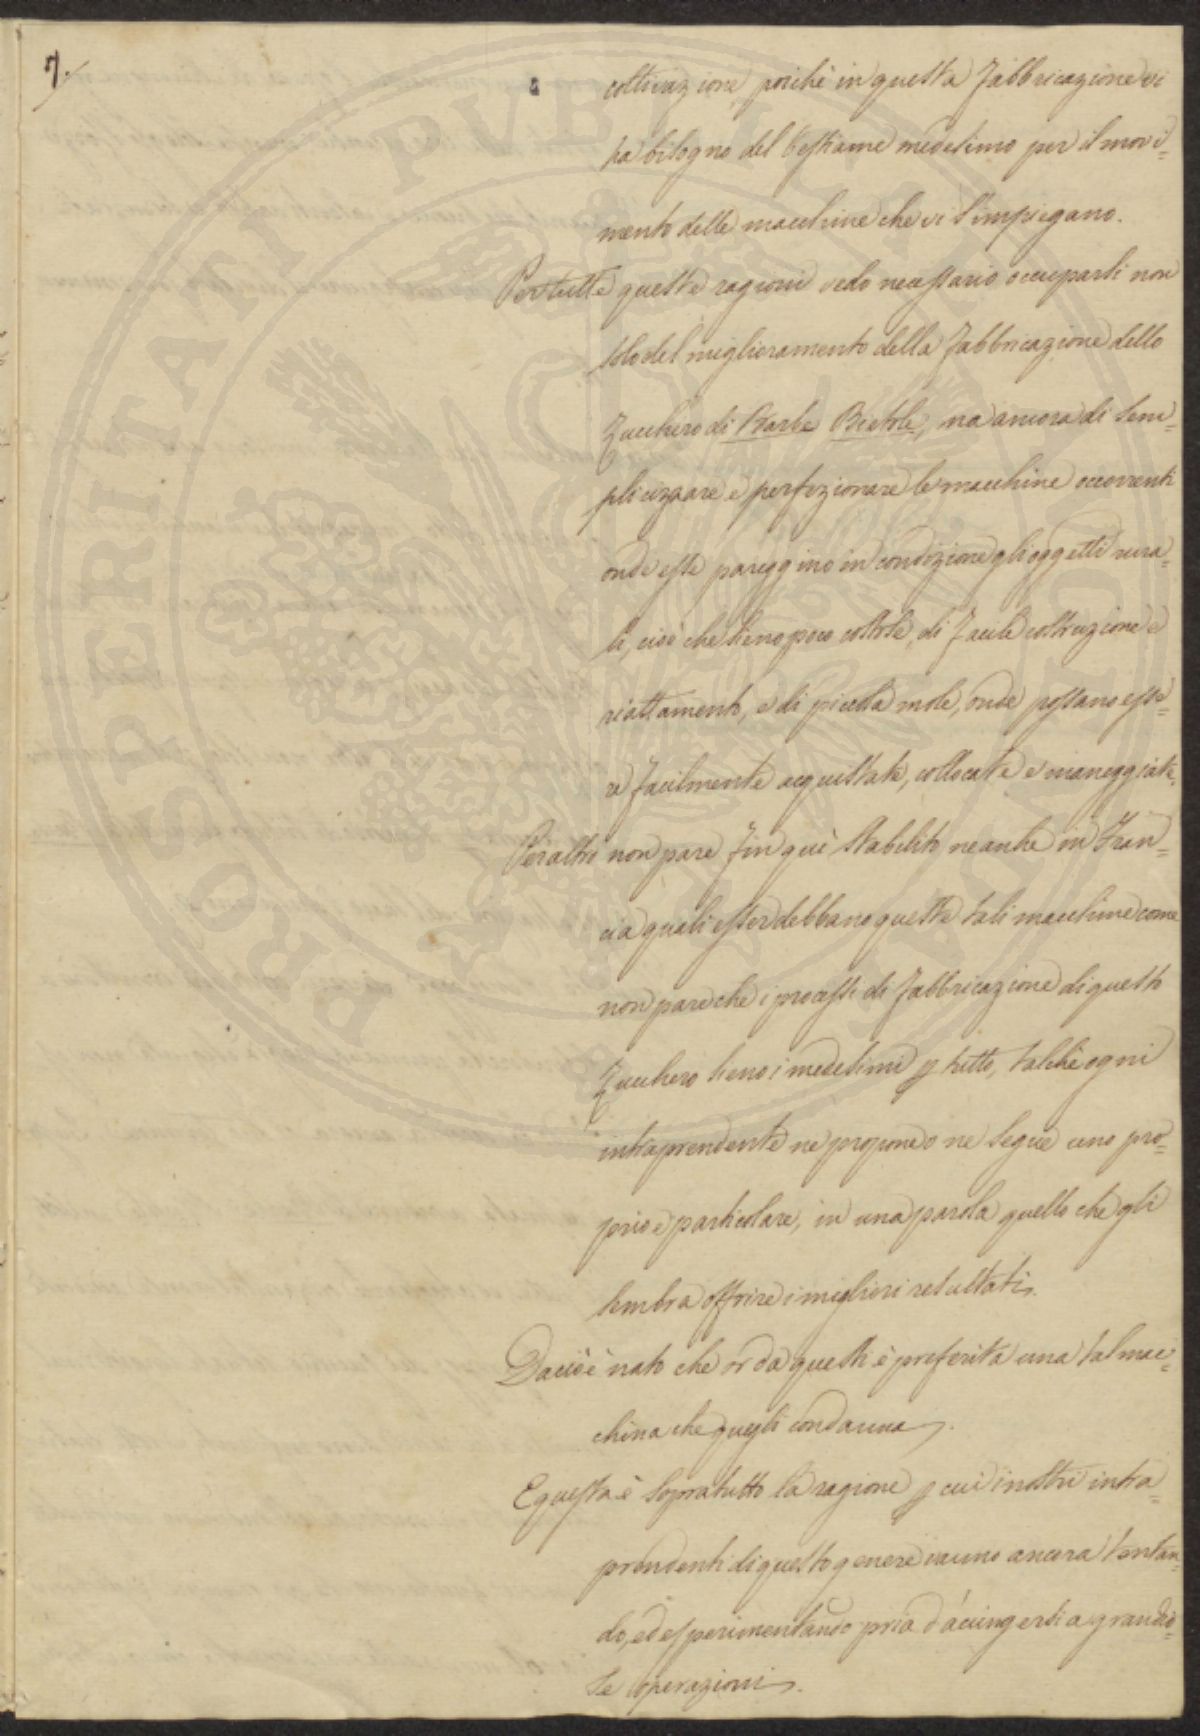 7./
coltivazione, poichè in questa Fabbricazione vi
ha bisogno del bestiame medesimo per il movi=
mento delle macchine che vi s'impiegano.
Per tutte queste ragioni vedo necessario occuparsi non
solo del miglioramento della Fabbricazione dello
Zucchero di Barbe Bietole, ma ancora di sem=
plicizzare e perfezionare le macchine occorrenti
onde esse pareggino in condizione gli oggetti rura=
li, cioè che sieno poco costose, di facile costruzione e
riattamento, e di piccola mole, onde possano esse=
re facilmente acquistate, collocate e maneggiate.
Peraltro non pare fin quì stabilito neanche in Fran=
cia quali esser debbano queste tali macchine come
non pare che i processi di Fabbricazione di questo
Zucchero sieno i medesimi p tutto, talchè ogni
intraprendente ne propone o ne segue uno pro=
prio e particolare, in una parola quello che gli
sembra offrire i migliori resultati.
Da ciò è nato che or da questi è preferita una tal mac=
china che quegli condanna.
E questa è sopratutto la ragione p cui i nostri intra=
prendenti di questo genere vanno ancora tentan=
do, ed esperimentando pria d'accingersi a grandio=
se operazioni.
PROSPERITATI PUBLICAE AUGENDAE